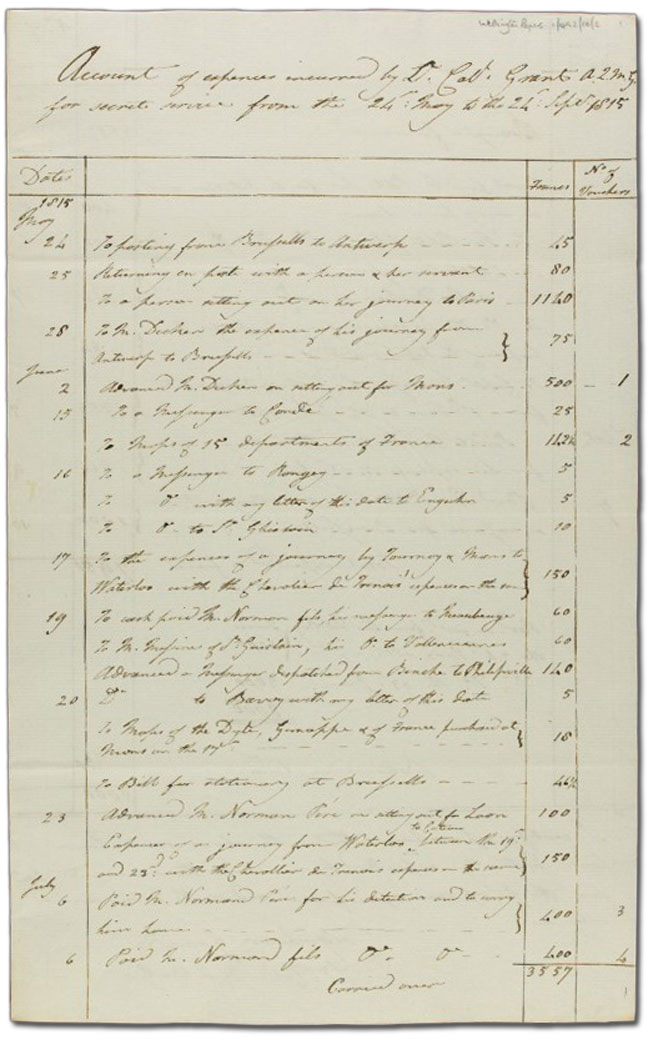 Wellington Papers
Account of expences incurred by Lt. Col. Grant A.Q.M.G.
for secret service from the 24th May to the 24th Sept 1815
Dates Francs No of Vouchers
1815
May
24 To posting from Brussells to Antwerp 45
25 Returning en post with a person & her servant 80
To a person setting out on her journey to Paris 1140
28 To M. Dicker the expence of his journey from
Antwerp to Brussells 75
June
2 Advanced M. Dicker on setting out for Mons 500 1
15 To a Messenger to Condé 25
To Maps of 15 departments of France 2
16 To a Messenger to 5
To Do with my letter of this date to Enguhn 5
To Do to St Ghislain 10
17 To the expences of a journey by Tournay & Mons to
Waterloo with the Chevalier de expences on the same 150
19 To cash paid M. Norman fils, his messenger to Maubeuge 60
To M. of St Guislain, his Do to Vallenciennes 60
Advanced a Messenger dispatched from Binche to Philipville 140
20 Do to Bavay with my letter of this date 5
To Maps of the Dyle, Genappe & of France purchased at
Mons on the 19th 18
To Bill for stationery at Brussells 46½
23 Advanced M. Norman Pére on setting out for Laon 100
Expences of a journey from Waterloo to Cateau between the 19th
and 23d with the Chevallier de expences on the same 150
July
6 Paid M. Normand Pére for his detention and to carry
him home 400 3
6 Paid M. Normand fils Do Do 400 4
3557
Carried over